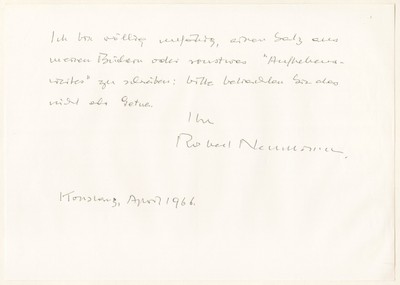 Ich bin völlig unfähig, einen Satz aus
meinen Büchern oder sonstwas "Aufhebens-
wertes" zu schreiben: bitte betrachten Sie das
nicht als
Ihr
Robert Neumann,
Konstanz, April 1966